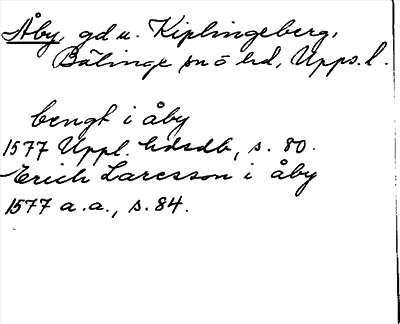 Åby, gd u. Kiplingeberg,
Bälinge sn o hd, Upps. l.
bengt i åby
1577 Uppl. hdsdb, s. 80.
Erich Larcsson i åby
1577 a.a., s. 84.